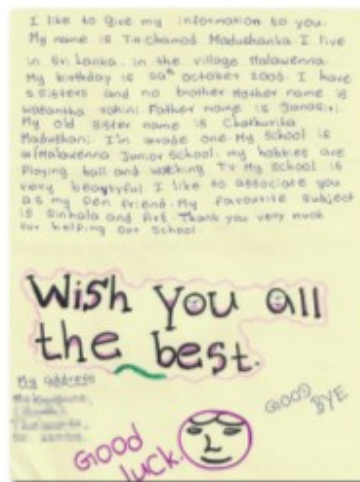 I like to give my information to you.
My name is T.H. Chamod Madushanka I live
in Sri Lanka. in the village Malawenna.
My birthday is October I have
2 sisters and no brother Mother name is
Wasantha Father name is
My old sister name is Chathurika
Madushani. I'm grade one My School is
Malawenna Junior School. my hobbies are
Playing ball and watching T.V My School is
very beautyful I like to associate you
as my Pen friend. My favourite Subject
is Sinhala and Art. Thank you very much
for helping Our School.
Wish You all
the best.
My address
GOOD
BYE
GOOD
luck.